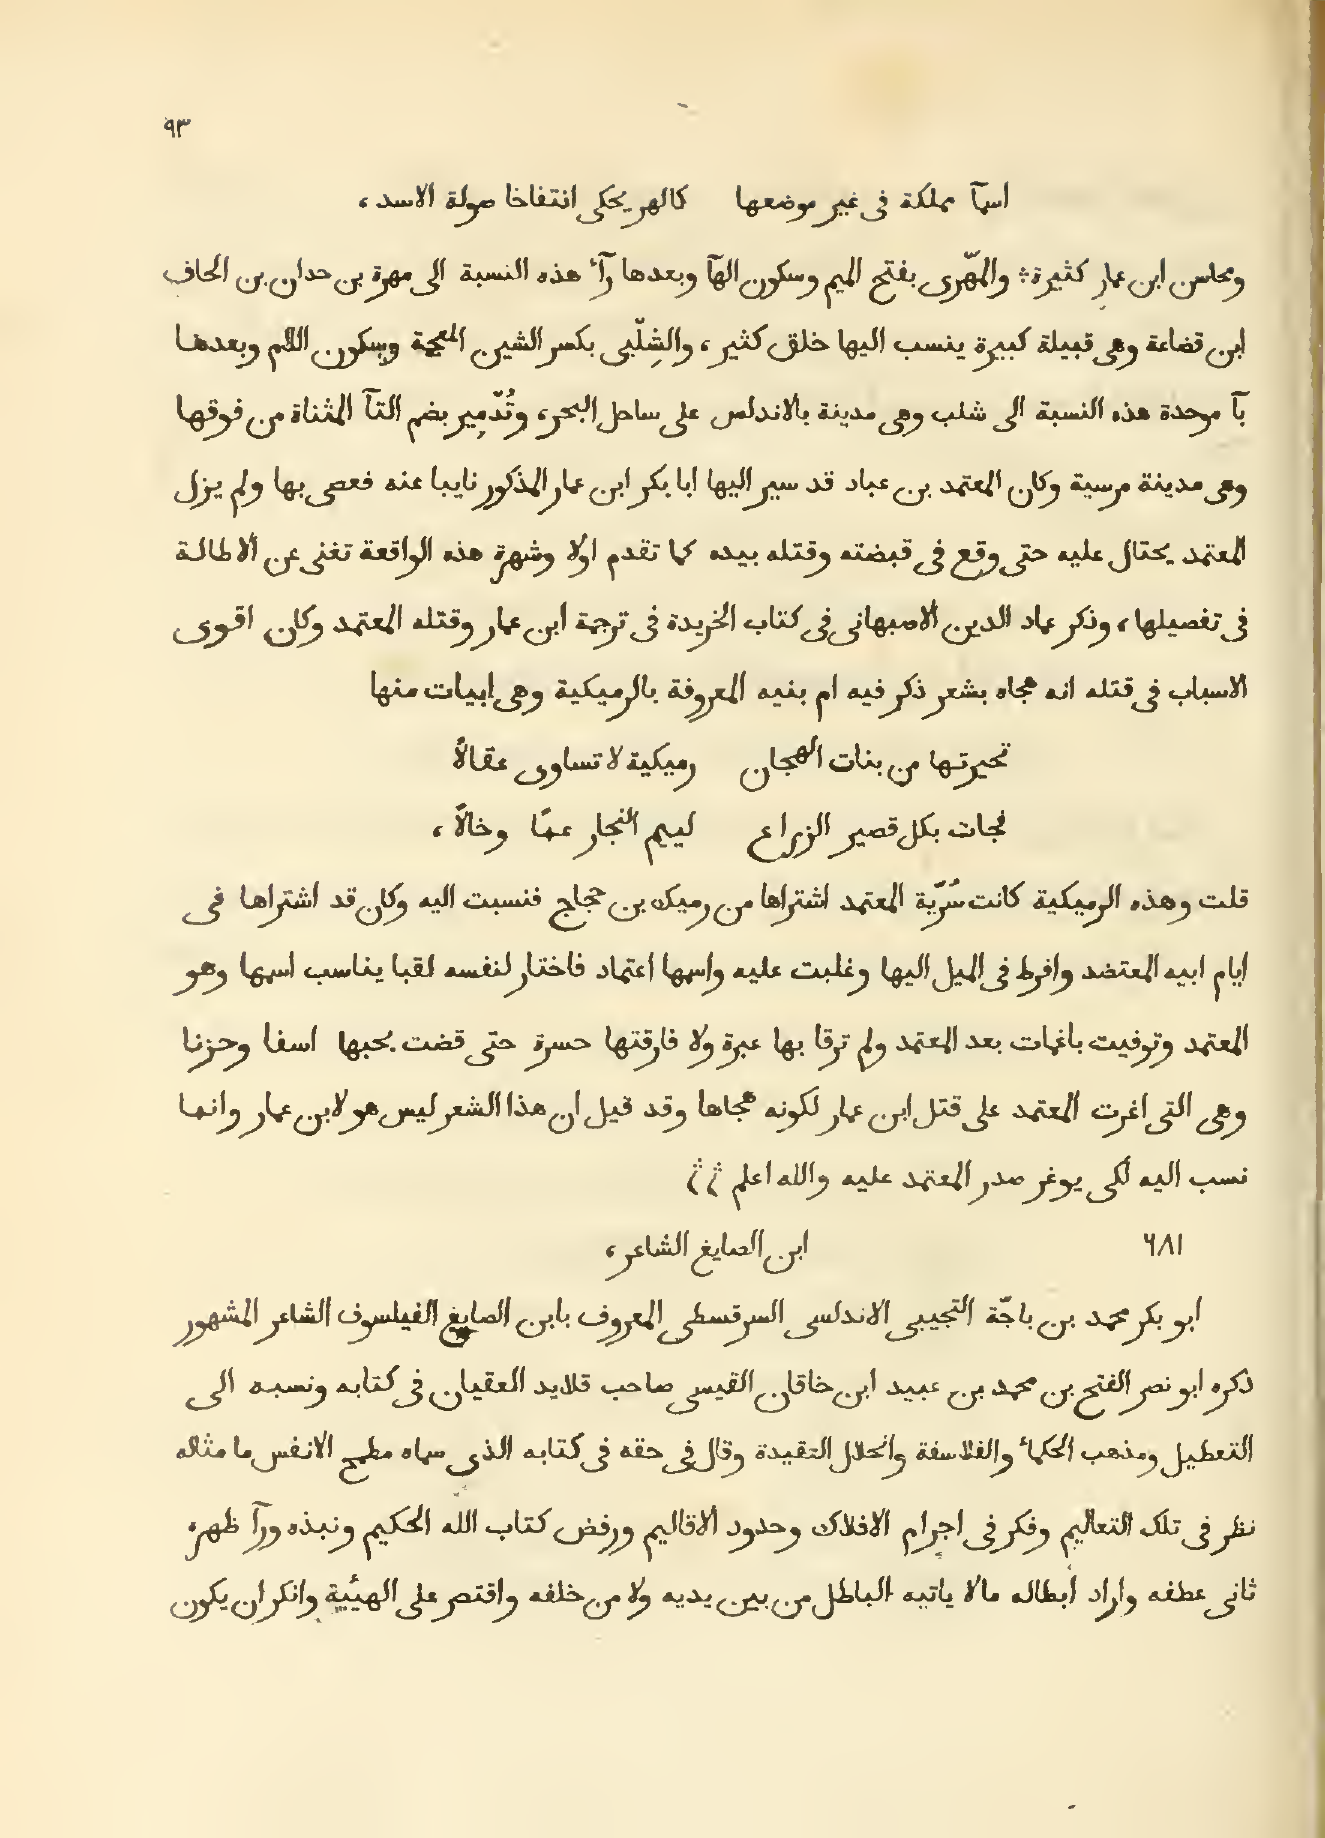 ٩٣
اسمآ مملكة فى غير موضعها كالهر يحكى انتفاخا صولة الاسد،
ومحاسن ابن عمار كثيرة؛ والمهّرى بفتح الميم وسكون الهآ وبعدها رآء هذه النسبة الى مهرة بن حدان بن الحاف
ابن قضاعة وهى قبيلة كبيرة ينسب اليها خلق كثير، والشِلّبى بكسر الشين المعجمة وسكون اللام وبعدها
بآ موحدة هذه النسبة الى شلب وهى مدينة بالاندلس على ساحل البحر، وتُدّمِير بضم التآ المثناة من فوقها
وهى مدينة مرسية وكان المعتمد بن عباد قد سير اليها ابا بكر ابن عمار المذكور نايبا عنه فعصى بها ولم يزل
المعتمد يحتال عليه حتى وقع فى قبضته وقتله بيده كما تقدم اولا وشهرة هذه الواقعة تغنى عن الاطالة
فى تفصيلها، وذكر عماد الدين الاصبهانى فى كتاب الخريدة فى ترجمة ابن عمار وقتله المعتمد وكان اقوى
الاسباب فى قتله انه هجاه بشعر ذكر فيه ام بنيه المعروفة بالرميكية وهى ابيات منها
تخيرتها من بنات الهجان رميكية لا تساوى عقالاً
فجات بكل قصير الزراع ليىم النجار عمًا وخالاً،
قلت وهذه الرميكية كانت سُرّية المعتمد اشتراها من رميك بن حجاج فنسبت اليه وكان قد اشتراها فى
ايام ابيه المعتضد وافرط فى الميل اليها وغلبت عليه واسمها اعتماد فاختار لنفسه لقبا يناسب اسمها وهو
المعتمد وتوفيت باغمات بعد المعتمد ولم ترقا بها عبرة ولا فارقتها حسرة حتى قضت بحبها اسفا وحزنا
وهى التى اغرت المعتمد على قتل ابن عمار لكونه هجاها وقد قيل ان هذا الشعر ليس هو لابن عمار وانما
نسب اليه لكى يوغر صدر المعتمد عليه والله اعلم ؛؛
٦٨١ ابن الصايغ الشاعر،
ابو بكر محمد بن باجّة التجيبى الاندلسى السرقسطى المعروف بابن الصايغ الفيلسوف الشاعر المشهور
ذكره ابو نصر الفتح بن محمد بن عبيد ابن خاقان القيسى صاحب قلايد العقيان فى كتابه ونسبه الى
التعطيل ومذهب الحكماء والفلاسفة وانحلال التقيدة وقال فى حقه فى كتابه الذى سماه مطمح الانفس ما مثاله
نظر فى تلك التعاليم وفكر فى اجرام الافلاك وحدود الاقاليم ورفض كتاب الله الحكيم ونبذه ورآ ظهره
ثانى عطفه واراد ابطاله مالا ياتيه الباطل من بين يديه ولا من خلفه واقتصر على الهيئية وانكر ان يكون